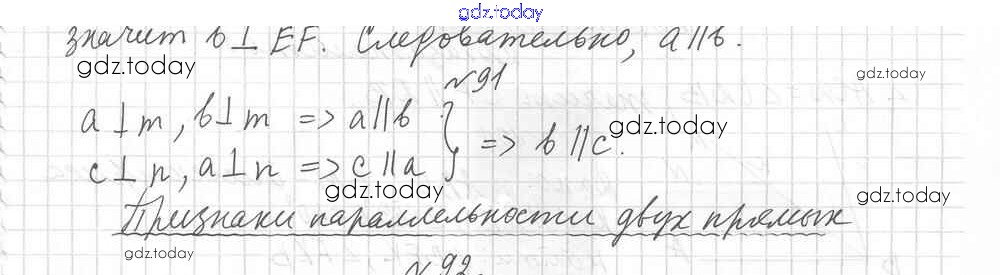 gdz.today
значит b⊥EF. Следовательно, a∥b.
gdz.today
gdz.today
№91
a⊥m, b⊥m => a∥b
gdz.today
} => b∥c.
c⊥n, a⊥n => c∥a
gdz.today
gdz.today
Признаки параллельности двух прямых
gdz.today
№92.